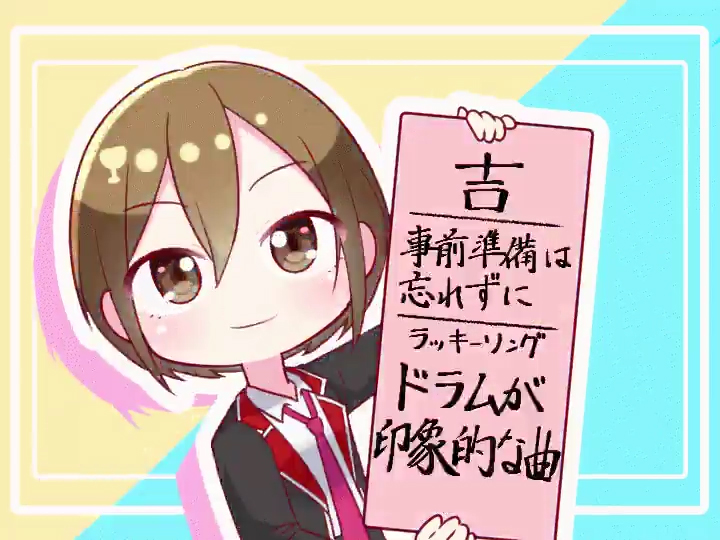 吉
事前準備は
忘れずに
ラッキーソング
ドラムが
印象的な曲